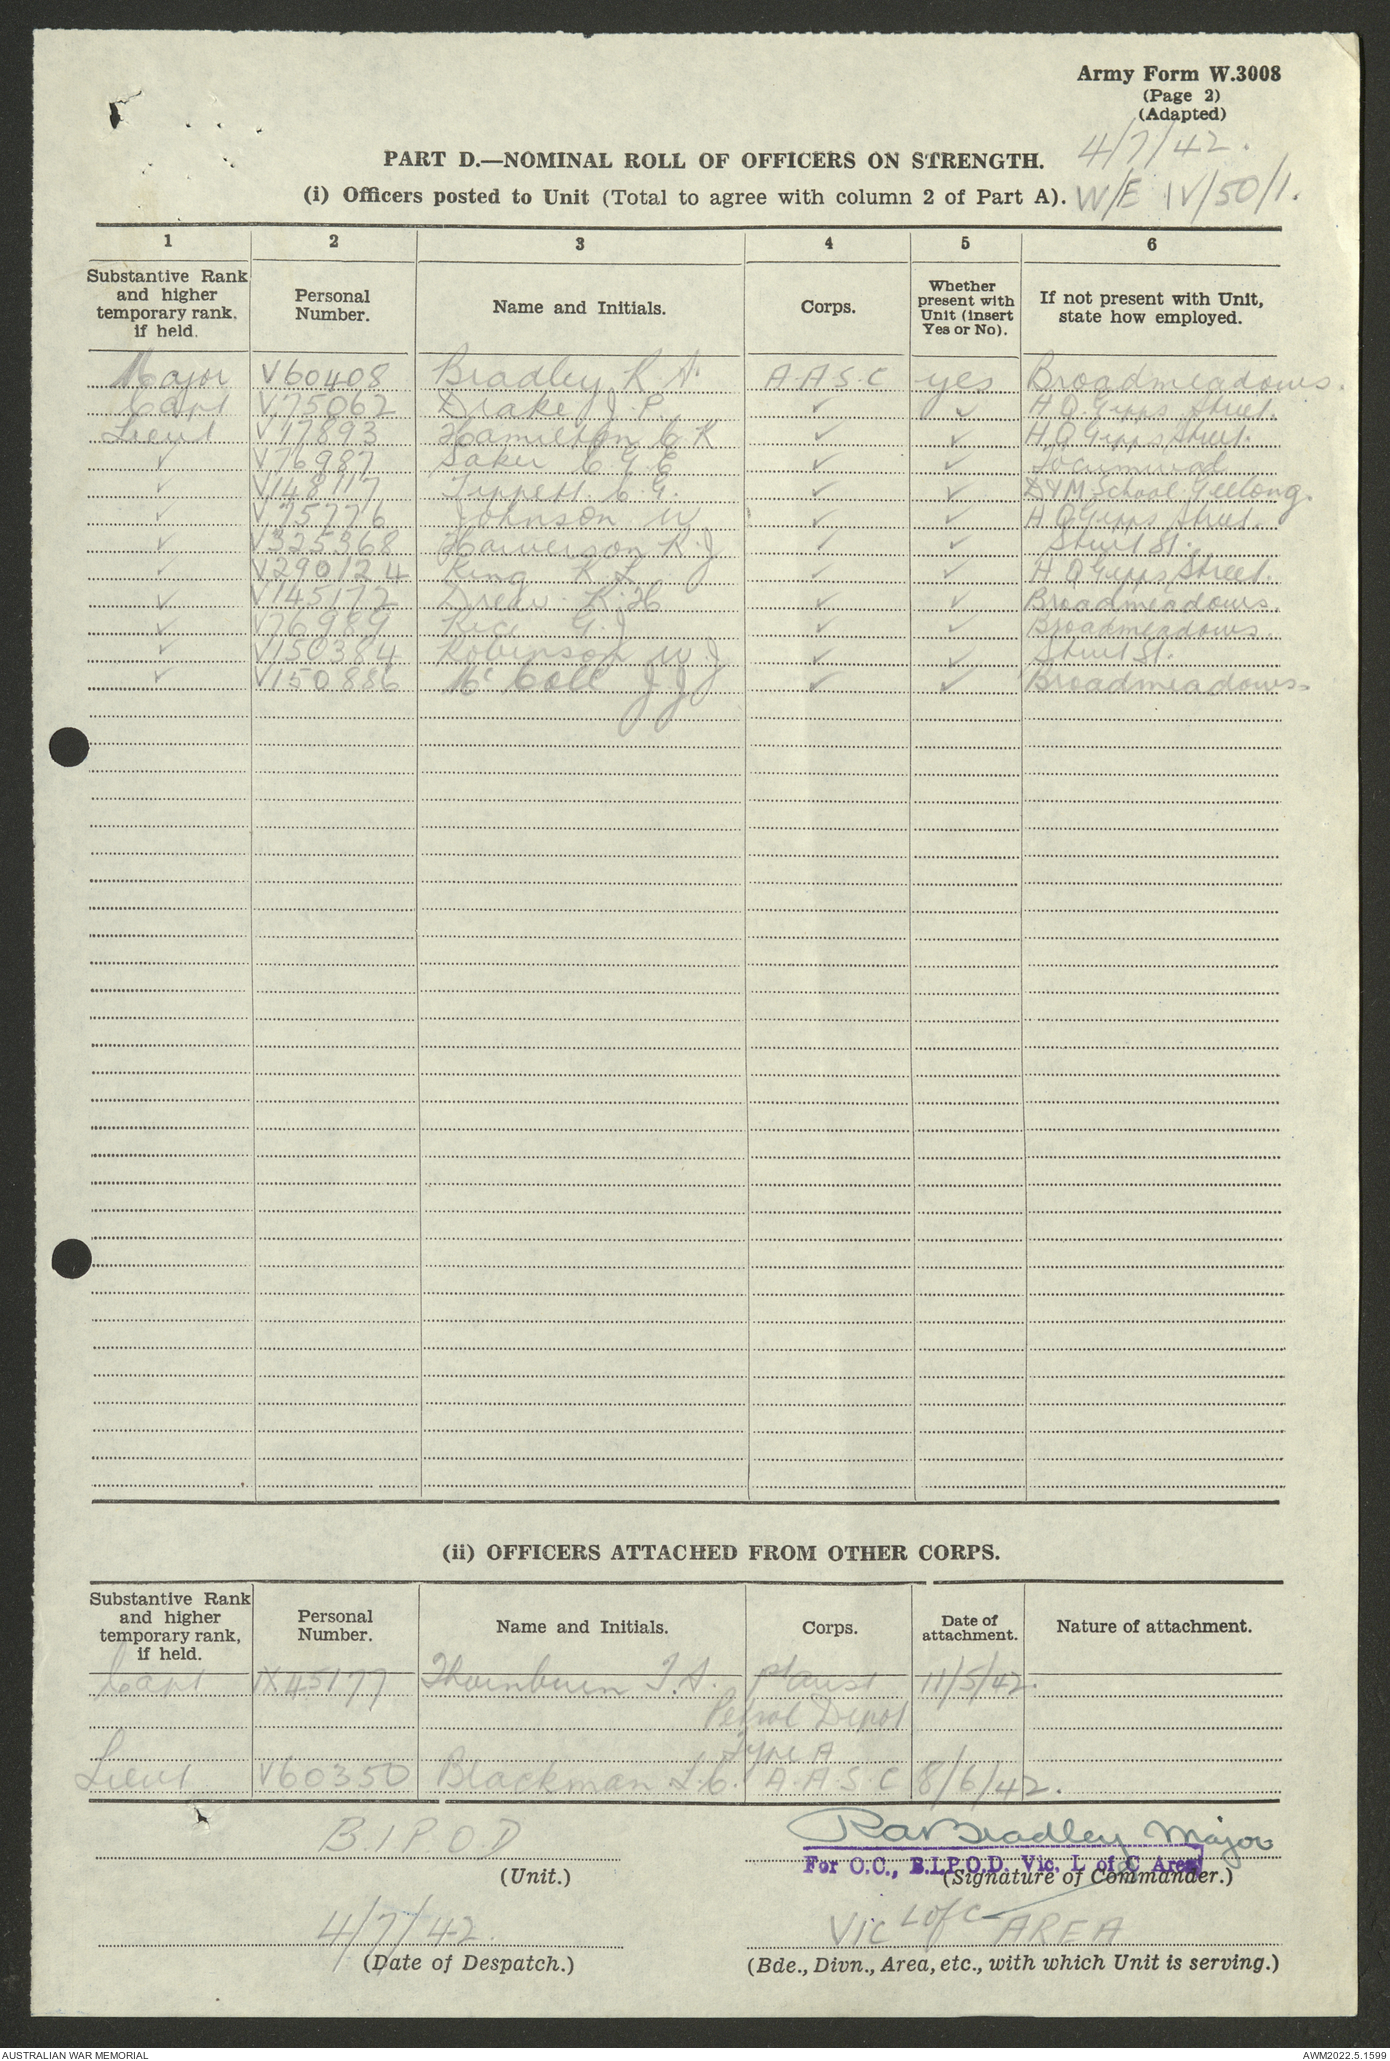 Army Form W.3008
(Page 2)
(Adapted)
4/7/42.
PART D.—NOMINAL ROLL OF OFFICERS ON STRENGTH.
(i) Officers posted to Unit (Total to agree with column 2 of Part A). W/E IV/50/1.
1 2 3 4 5 6
Substantive Rank and higher temporary rank, if held. Personal Number. Name and Initials. Corps. Whether present with Unit (insert Yes or No). If not present with Unit, state how employed.
Major V60408 Bradley R. A. A.A.S.C yes Broadmeadows.
Capt V75062 Drake J. P. ✓ ✓ H.Q. Gipps Street.
Lieut V17893 Hamilton C K ✓ ✓ H Q Gipps Street.
✓ V76987 Saker C. G. E ✓ ✓ Tocumwal
✓ V148117 Tippett C. G. ✓ ✓ D&M School Geelong.
✓ V75776 Johnson W ✓ ✓ H Q Gipps Street.
✓ V325368 Harverson R. J ✓ ✓ Sturt St.
✓ V290124 King K. L ✓ ✓ H Q Gipps Street.
✓ V145172 Drew R. H ✓ ✓ Broadmeadows.
✓ V76989 Rice G. J ✓ ✓ Broadmeadows.
✓ V150384 Robinson W. J ✓ ✓ Sturt St.
✓ V150886 McColl J. J ✓ ✓ Broadmeadows.
(ii) OFFICERS ATTACHED FROM OTHER CORPS.
Substantive Rank and higher temporary rank, if held. Personal Number. Name and Initials. Corps. Date of attachment. Nature of attachment.
Capt 45177 Thornburn A. Aust 11/5/42.
Petrol Depot
Type A
Lieut V60350 Blackman L. C. A.A.S.C 8/6/42.
B.I.P.O.D RA Bradley Major
For O.C., B.I.P.O.D. Vic. L of C Area
(Unit.) (Signature of Commander.)
4/7/42. VIC L of C AREA
(Date of Despatch.) (Bde., Divn., Area, etc., with which Unit is serving.)
AUSTRALIAN WAR MEMORIAL AWM2022.5.1599